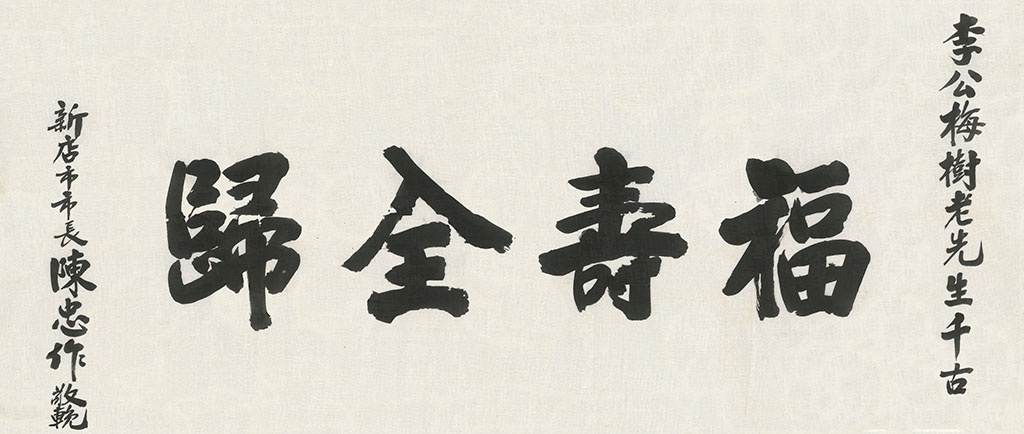 李公梅樹老先生千古
福壽全歸
新店市市長陳忠作敬輓